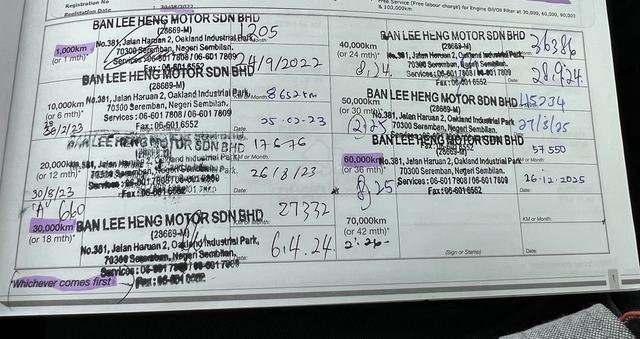 Registration No
Registration Date 30/08/2022
Free Service (Free labour charge) for Engine Oil/Oil Filter at 30,000, 60,000, 90,000
& 100,000km
1,000km
(or 1 mth)*
BAN LEE HENG MOTOR SDN BHD
(28669-M)
No.381, Jalan Haruan 2, Oakland Industrial Park,
70300 Seremban, Negeri Sembilan.
Services : 06-601 7808 / 06-601 7809
Fax : 06-601 6552
1205
24/9/2022
10,000km
(or 6 mth)*
28/2/23
BAN LEE HENG MOTOR SDN BHD
(28669-M)
No.381, Jalan Haruan 2, Oakland Industrial Park,
70300 Seremban, Negeri Sembilan.
Services : 06-601 7808 / 06-601 7809
Fax : 06-601 6552
8652km
25-02-23
20,000km
(or 12 mth)*
30/8/23
BAN LEE HENG MOTOR SDN BHD
17676
26/8/23
"A" 660
30,000km
(or 18 mth)*
BAN LEE HENG MOTOR SDN BHD
(28669-M)
No.381, Jalan Haruan 2, Oakland Industrial Park,
70300 Seremban, Negeri Sembilan.
Services : 06-601 7808 / 06-601 7809
27332
6.4.24
*Whichever comes first
40,000km
(or 24 mth)*
8.24
BAN LEE HENG MOTOR SDN BHD
(28669-M)
No.381, Jalan Haruan 2, Oakland Industrial Park,
70300 Seremban, Negeri Sembilan.
Services : 06-601 7808 / 06-601 7809
Fax : 06-601 6552
36386
28.9.24
50,000km
(or 30 mth)*
2/25
BAN LEE HENG MOTOR SDN BHD
(28669-M)
No.381, Jalan Haruan 2, Oakland Industrial Park,
70300 Seremban, Negeri Sembilan.
Services : 06-601 7808 / 06-601 7809
Fax : 06-601 6552
45234
27/3/25
60,000km
(or 36 mth)*
8.25
BAN LEE HENG MOTOR SDN BHD
(28669-M)
No.381, Jalan Haruan 2, Oakland Industrial Park,
70300 Seremban, Negeri Sembilan.
Services : 06-601 7808 / 06-601 7809
Fax : 06-601 6552
57550
26.12.2025
70,000km
(or 42 mth)*
2.26
(Sign or Stamp)
KM or Month:
Date:
1